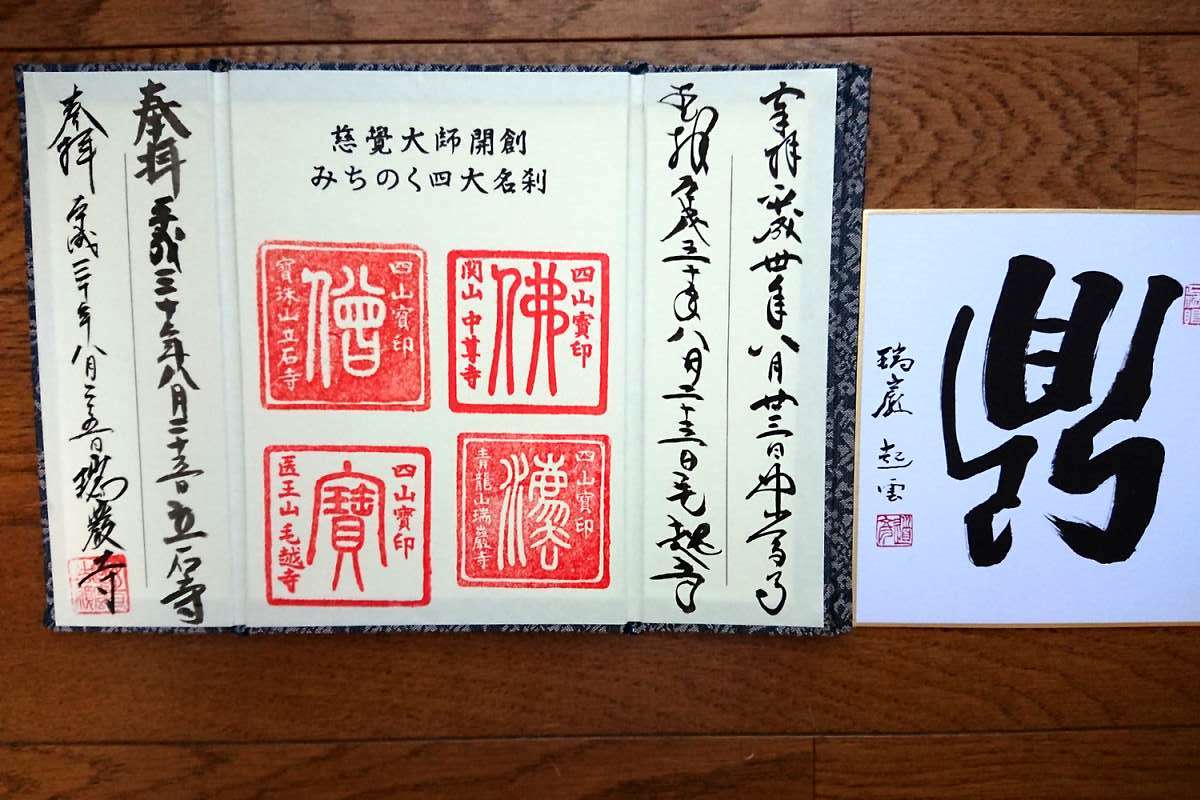 奉拝 平成卅年八月廿三日 中尊寺
奉拝 平成三十年八月二十三日 毛越寺
慈覺大師開創
みちのく四大名刹
四山寶印
佛
関山 中尊寺
四山寶印
僧
寶珠山立石寺
四山寶印
青龍山瑞巖寺
四山寶印
寶
医王山 毛越寺
奉拝 平成三十年八月二十五日 立石寺
奉拝 平成三十年八月二十五日 瑞巌寺
瑞巌 起雲